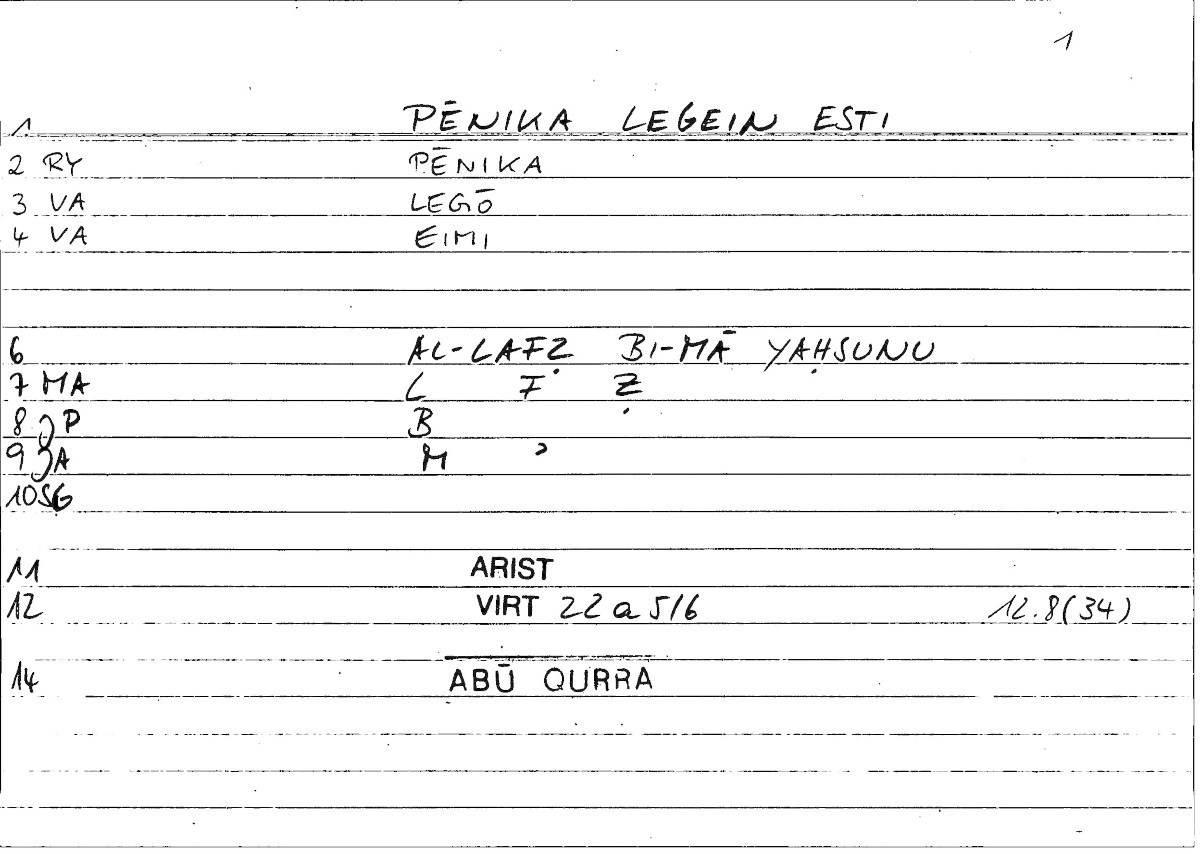 1
1 PĒNIKA LEGEIN ESTI
2 RY PĒNIKA
3 VA LEGŌ
4 VA EIMI
6 AL-LAFẒ BI-MĀ YAḤSUNU
7 MA L F Ẓ
8 P B
9 A M ʾ
10 SG
11 ARIST
12 VIRT 22 a 5/6 12.8(34)
14 ABŪ QURRA